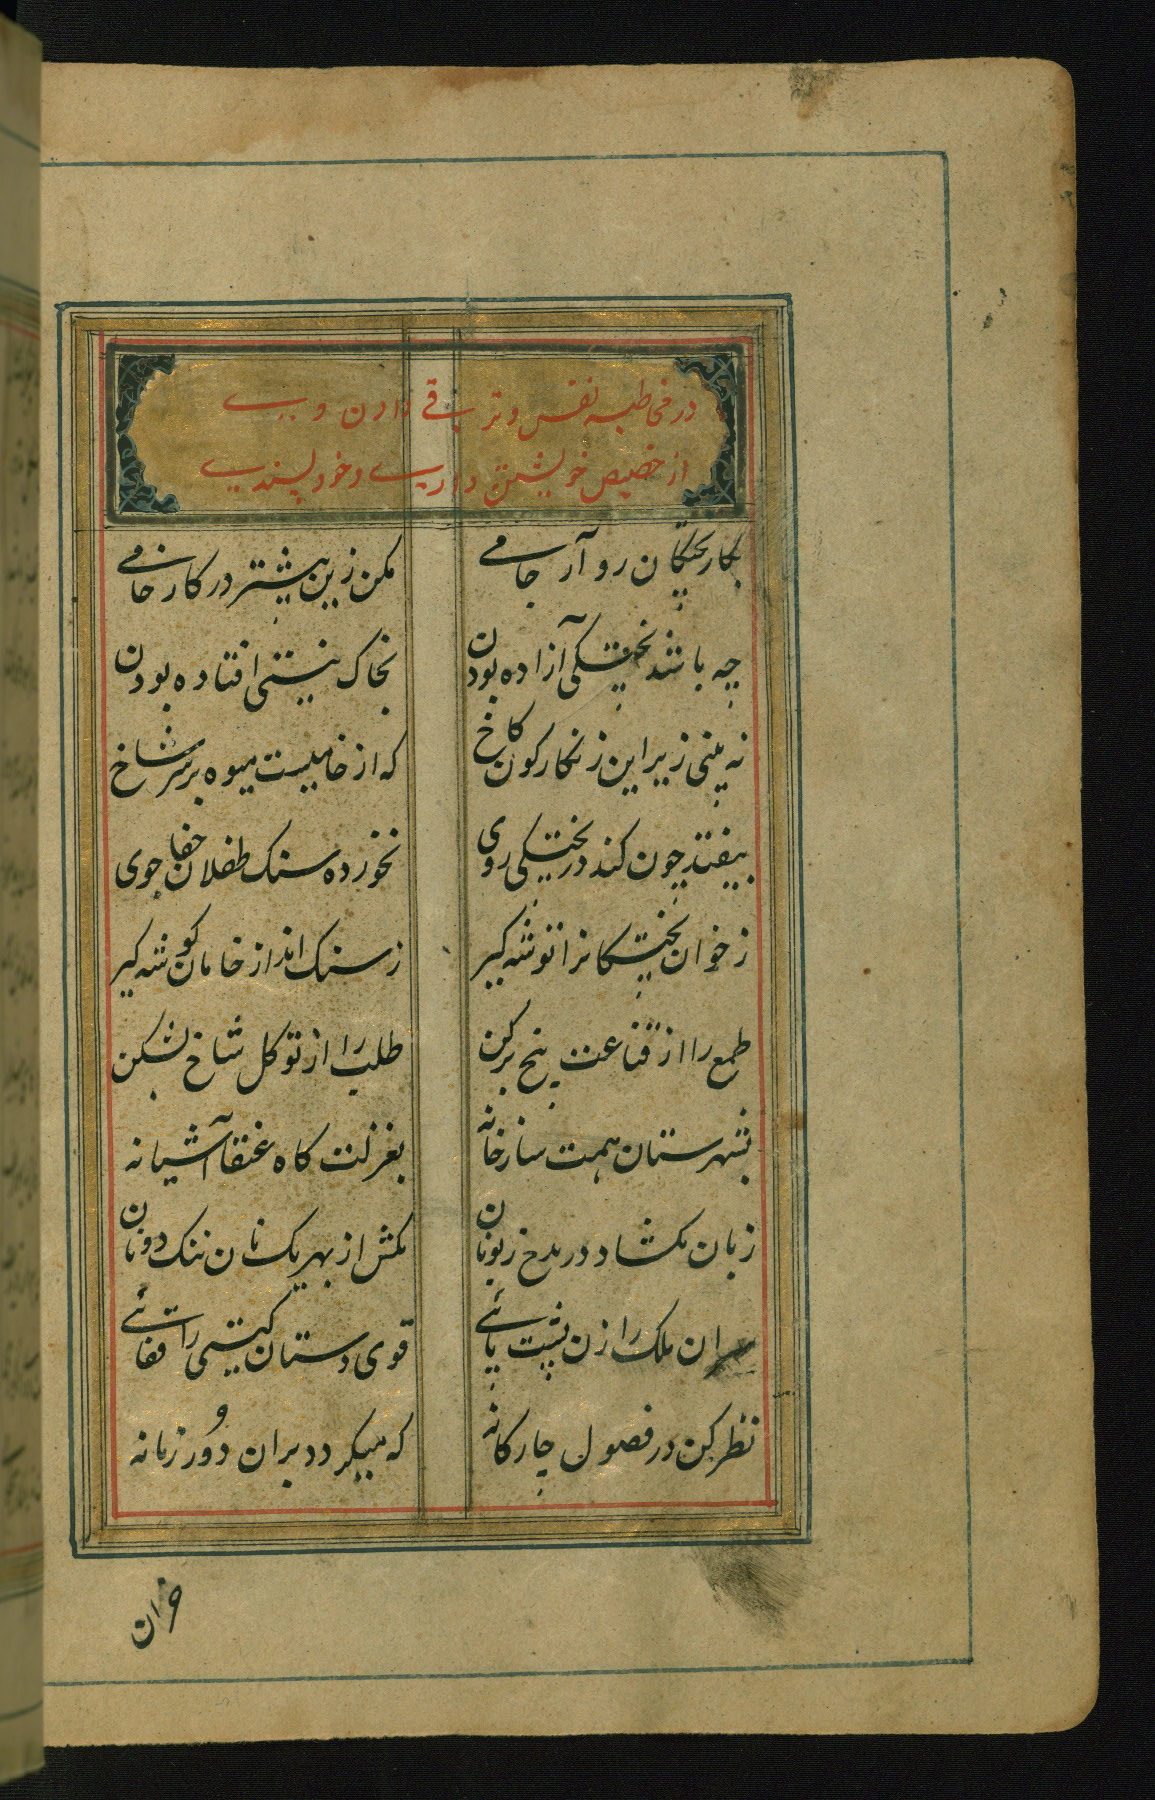 در مخاطبه نفس و ترقے دادن ویرے
از خصیص خویشتن داریے و خود پسندیے
بکار پختکان رو آر جامے مکن زین بیشتر در کار خامے
چه باشد پختکی آزاده بودن بخاک نیستی افتاده بودن
نه بینی زیر این زنکارکون کاخ که از خامیست میوه بر سر شاخ
بیفتد چون کند در پختکی روی نخورده سنک طفلان جفا جوی
ز خوان پختکانرا توشه کیر ز سنک انداز خامان کوشه کیر
طمع را از قناعت بیخ برکن طلب را از توکل شاخ بشکن
بشهرستان همت ساز خانه بعزلت کاه عنقا آشیانه
زبان مکشاد در مدح زبونان مکش از بهر یک نان ننک دونان
سران ملک را زن پشت پائے قوی دستان کیتی را قفائے
نظر کن در فصول چارکانه که میکردد بران دور زمانه
خزان